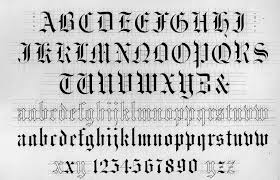 ABCDEFGHI
JKKLMNOOPQRS
TUVWXYZ&
abcdefghijklmnopqrstuvw
abcdefghijklmnopqrstuvw
xxyz 1234567890 yzz